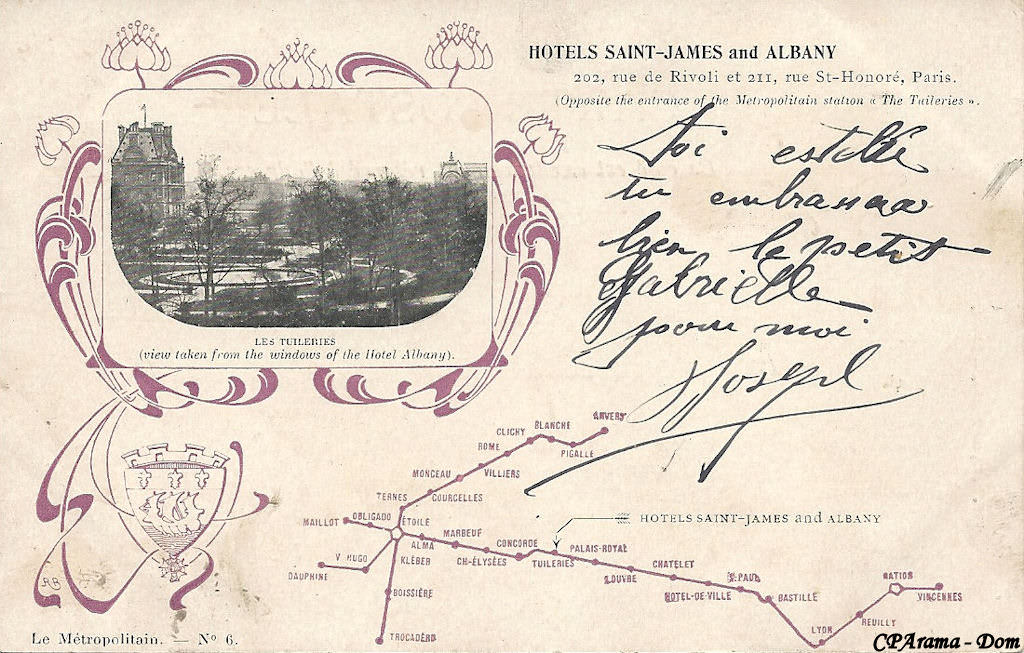 HOTELS SAINT-JAMES and ALBANY
202, rue de Rivoli et 211, rue St-Honoré, Paris.
(Opposite the entrance of the Metropolitain station « The Tuileries ».
tu embrassera
bien le petit
Gabrielle
pour moi
Joseph
LES TUILERIES
(view taken from the windows of the Hotel Albany).
ANVERS
BLANCHE
CLICHY
PIGALLE
ROME
VILLIERS
MONCEAU
COURCELLES
TERNES
MAILLOT
OBLIGADO
ÉTOILE
HOTELS SAINT-JAMES and ALBANY
MARBEUF
ALMA
CONCORDE
PALAIS-ROYAL
V. HUGO
KLÉBER
CH-ÉLYSÉES
TUILERIES
DAUPHINE
LOUVRE
CHATELET
St PAUL
NATION
BOISSIÈRE
HOTEL-DE-VILLE
BASTILLE
VINCENNES
REUILLY
LYON
TROCADÉRO
RB
Le Métropolitain. — No 6.
CPArama - Dom